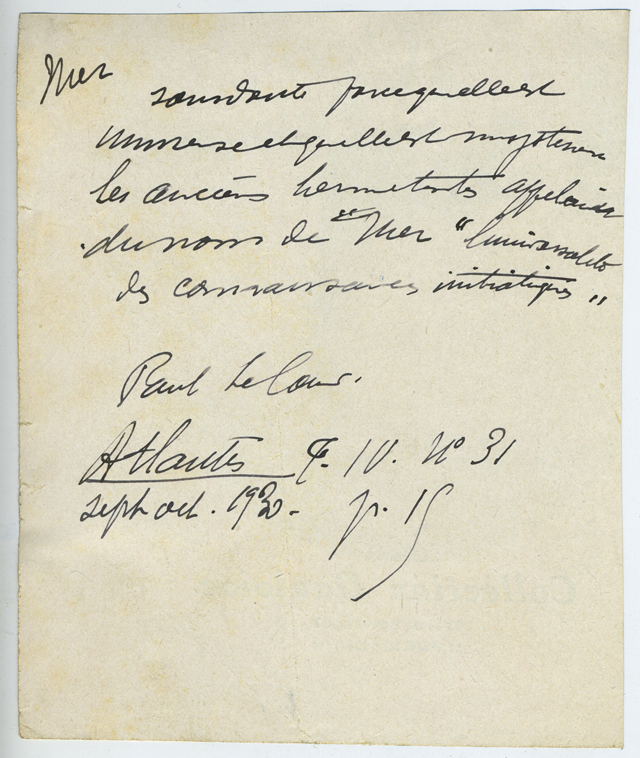 Mer
parcequelleest
immense et quelle est mysterieuse
les anciens hermetistes appelaient
du nom de "Mer" "l'universalité
des connaissances initiatiques"
Paul Le Cour.
Atlantis T. IV. No 31
sept oct. 1930. p. 15